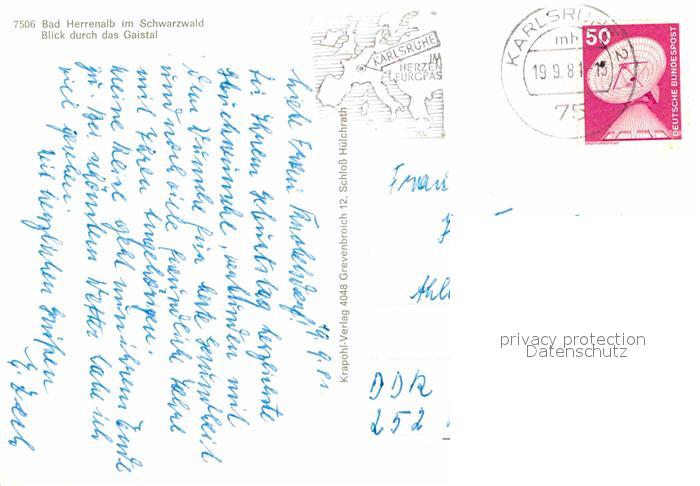 7506 Bad Herrenalb im Schwarzwald
Blick durch das Gaistal
KARLSRUHE
IM
HERZEN
EUROPAS
KARLSRUHE
mh
19.9.81
75
50
DEUTSCHE BUNDESPOST
ERDEFUNKSTELLE
Krapohl-Verlag 4048 Grevenbroich 12, Schloß Hülchrath
19.9.81
Liebe Frau
zu Ihrem Geburtstag herzliche
Glückwünsche, verbunden mit
dem Wunsche für gute Gesundheit
und noch viele freundliche Jahre
mit Ihren Angehörigen.
Meine Reise geht nun ihrem Ende
zu. Bei schönstem Wetter habe ich
viel gesehen.
Mit herzlichen Grüßen
Frau
Ahl
DDR
252
privacy protection
Datenschutz